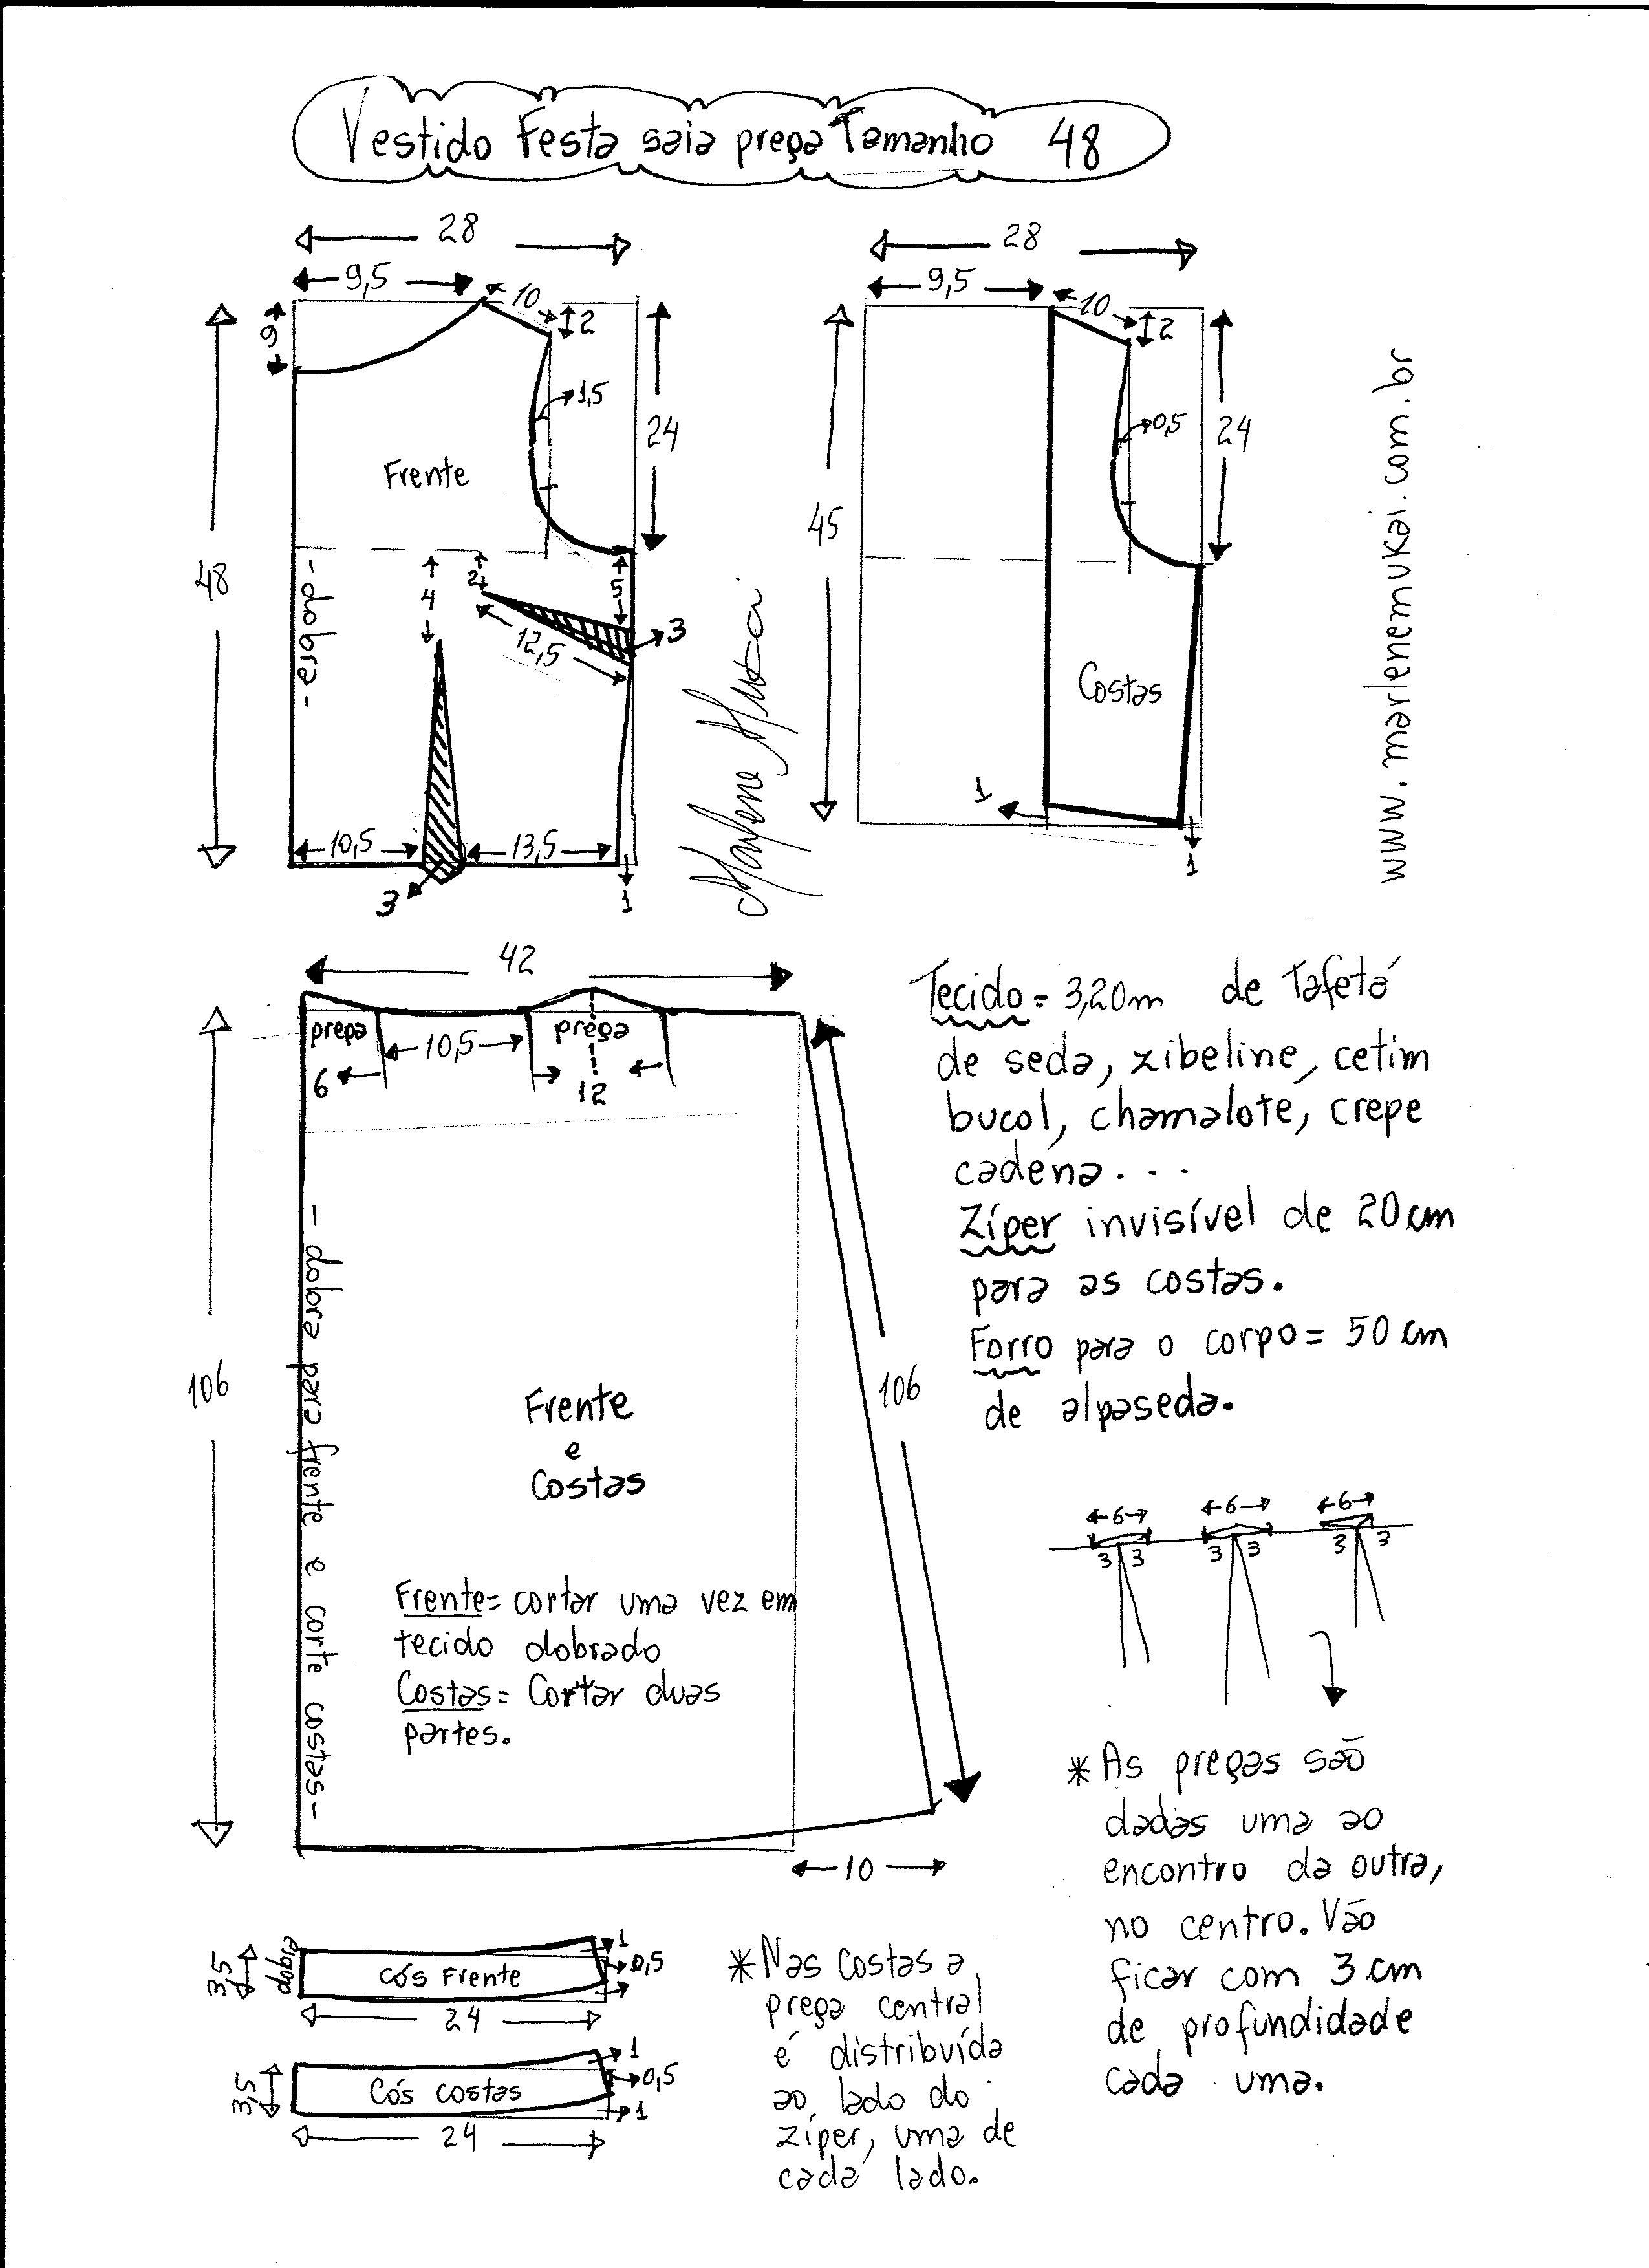 Vestido Festa saia prega Tamanho 48
28
9,5
10
2
9
1,5
24
Frente
48
- dobra -
4
2
5
12,5
3
10,5
13,5
3
1
Marlene Mukai
28
9,5
10
2
0,5
24
45
Costas
1
1
www.marlenemukai.com.br
42
prega
10,5
prega
6
12
106
- dobra para frente e corte costas -
106
Frente
e
Costas
Frente = cortar uma vez em
tecido dobrado
Costas = Cortar duas
partes.
10
Tecido = 3,20m de Tafetá
de seda, zibeline, cetim
bucol, chamalote, crepe
cadena...
Zíper invisível de 20 cm
para as costas.
Forro para o corpo = 50 cm
de alpaseda.
6
6
6
3 3
3 3
3 3
* As pregas são
dadas uma ao
encontro da outra,
no centro. Vão
ficar com 3 cm
de profundidade
cada uma.
3,5
dobra
Cós Frente
1
0,5
24
3,5
Cós costas
1
0,5
1
24
* Nas Costas a
prega central
é distribuída
ao lado do
zíper, uma de
cada lado.